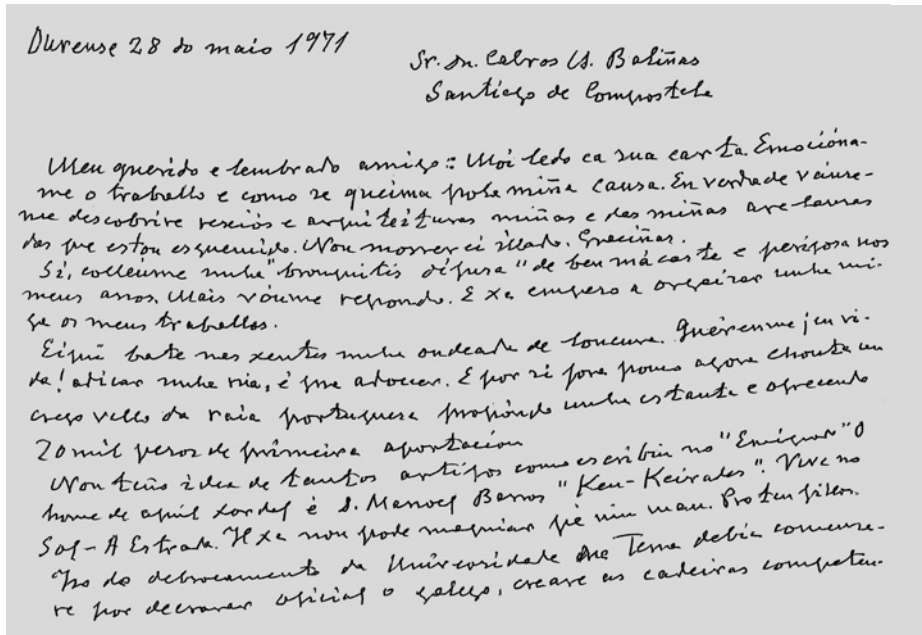 Ourense 28 do maio 1971
Sr. Dn. Calros A. Baliñas
Santiago de Compostela
Meu querido e lembrado amigo: Moi ledo ca sua carta. Emocióna-
me o traballo e como se queima pola miña causa. En verdade váuse-
me descobrire e arquiteituras miñas e das miñas
das que estou esquencido. Non morrerei illado. Graciñas.
Si, colleume unha "bronquitis" de ben má caste e perigosa nos
meus anos. Mais vóume repondo. E xa empezo a orgaizar unha mi-
ga os meus traballos.
Eiquí bate nas xentes unha ondeada de loucura. Quérenme
adicar unha rúa, é pra adoecer. E por si fora pouco agora chouta un
crego vello da raia portuguesa propóndo unha estauta e ofrecendo
20 mil pesos de primeira aportación
Non teño idea de tantos artigos como escribín no "Emigrar" O
home de aquil xordal é D. Manoel Barros "Ken-Keirades". Vive no
Sof - A Estrada. Il xa non pode maquiar pié nin man. Pro ten fillos.
Iso do da Universidade na Terra debía comenza-
re por decrarar oficial o galego, creare as cadeiras competen-